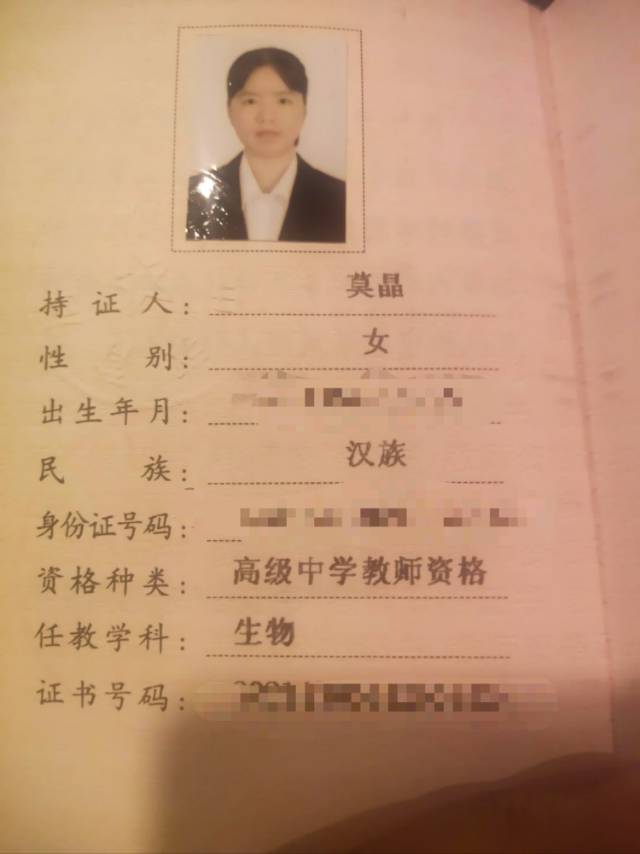 持证人：莫晶
性别：女
出生年月：
民族：汉族
身份证号码：
资格种类：高级中学教师资格
任教学科：生物
证书号码：